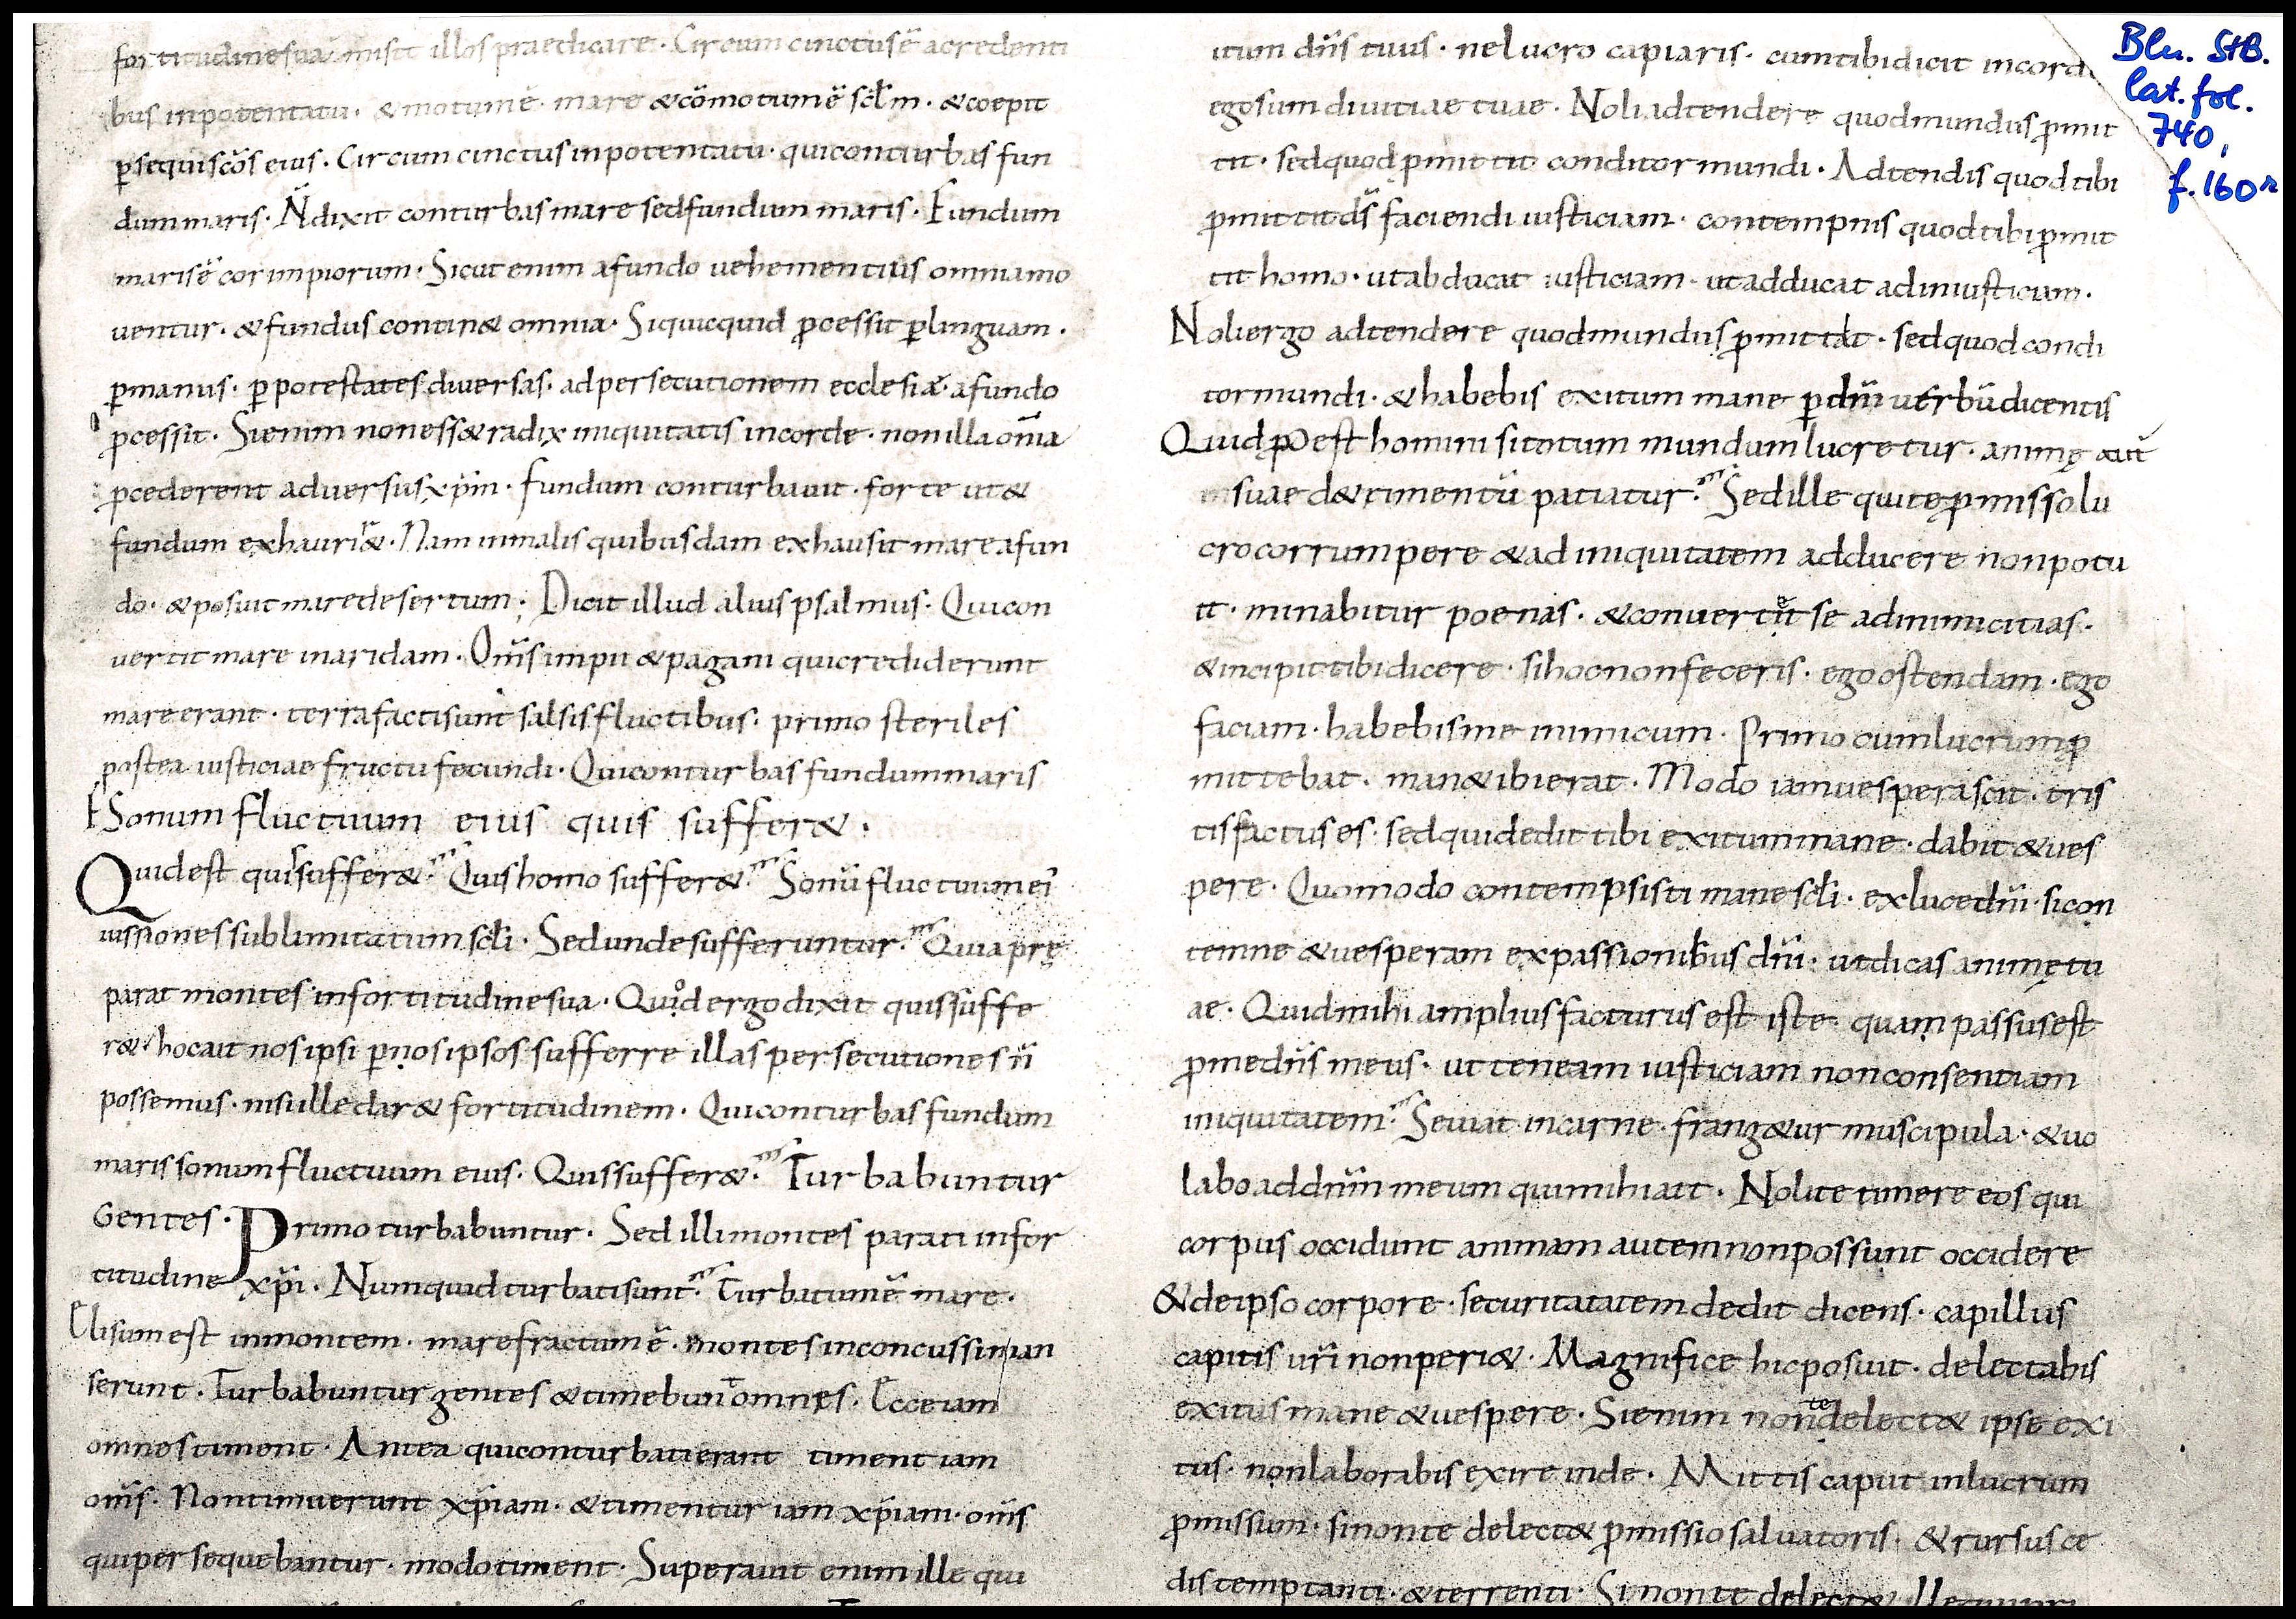 fortitudine sua misit illos praedicare. Circum cinctus ē a credenti
bus in potentatu. & motum ē mare & cōmotum ē sclm. & coepit
p̱sequi scōs eius. Circum cinctus in potentatu. qui conturbas fun
dum maris. N̄ dixit conturbas mare sed fundum maris. Fundum
maris ē cor impiorum. Sicut enim a fundo vehementius omnia mo
ventur. & fundus contin& omnia. Si quicquid p̱cessit p̱ linguam.
p̱ manus. p̱ potestates diversas. ad persecutionem ecclesiæ. a fundo
p̱cessit. Si enim non ess& radix iniquitatis in corde. non illa om̄ia
p̱cederent adversus xp̄m. fundum conturbavit. forte ut &
fundum exhaurir&. Nam in malis quibusdam exhausit mare a fun
do. & posuit mare desertum. Dicit illud alius psalmus. Qui con
vertit mare in aridam. Om̄s impii & pagani qui crediderunt
mare erant. terra facti sunt salsis fluctibus. primo steriles
postea iusticiae fructu fecundi. Qui conturbas fundum maris
Sonum fluctuum eius quis suffer&.
Quid est quis suffer&. Quis homo suffer&. Sonū fluctuum ei
iussiones sublimitatum scli. Sed unde sufferuntur. Quia prę
parat montes in fortitudine sua. Quod ergo dixit quis suffe
r& hoc ait nos ipsi p̱ nos ipsos sufferre illas persecutiones n̄
possemus. nisi ille dar& fortitudinem. Qui conturbas fundum
maris sonum fluctuum eius. Quis suffer&. Turbabuntur
Gentes. Primo turbabuntur. Sed illi montes parati in for
titudine xp̄i. Numquid turbati sunt. Turbatum ē mare.
Elisum est in montem. mare fractum ē. montes inconcussi man
serunt. Turbabuntur gentes & timebunt omnes. Ecce iam
omnes timent. Antea qui conturbati erant timent iam
om̄s. Non timuerunt xp̄iani. & timentur iam xp̄iani. om̄s
qui persequebantur. modo timent. Superavit enim ille qui
itum dn̄s tuus. ne lucro capiaris. cum tibi dicit in corde
ego sum divitiae tuae. Noli adtendere quod mundus p̱mit
tit. sed quod p̱mittit conditor mundi. Adtendis quod tibi
p̱mittit ds̄ faciendi iusticiam. contempnis quod tibi p̱mit
tit homo. ut abducat iusticiam. ut adducat ad iniusticiam.
Noli ergo adtendere quod mundus p̱mittat. sed quod condi
tor mundi. & habebis exitum mane p̱ dn̄i verbū dicentis
Quid p̱dest homini si totum mundum lucretur. animę autē
suae d&rimentū patiatur. Sed ille qui te p̱misso lu
cro corrumpere & ad iniquitatem adducere non potu
it. minabitur poenas. & convertit se ad inimicitias.
& incipit tibi dicere. si hoc non feceris. ego ostendam. ego
faciam. habebis me inimicum. Primo cum lucrum p̱
mittebat. man& ibi erat. Modo iam vesperascit. tris
tis factus es. sed qui dedit tibi exitum mane. dabit & ves
pere. Quomodo contempsisti mane scli. ex luce dn̄i. sic con
temne & vesperam ex passionibus dn̄i. ut dicas animę tu
ae. Quid mihi amplius facturus est iste. quam passus est
p̱ me dn̄s meus. ut teneam iusticiam non consentiam
iniquitatem. Seviat in carne. frang&ur muscipula. & vo
labo ad dn̄m meum qui mihi ait. Nolite timere eos qui
corpus occidunt animam autem non possunt occidere
& de ipso corpore. securitatatem dedit dicens. capillus
capitis vr̄i non peri&. Magnifice hic posuit. delectabis
exitus mane & vespere. Si enim non te delect& ipse exi
tus. non laborabis exire inde. Mittis caput in lucrum
p̱missum. si non te delect& p̱missio salvatoris. & rursus ce
dis temptanti. & terrenti. Si non te delect&
Bln. StB.
lat. fol.
740,
f. 160r